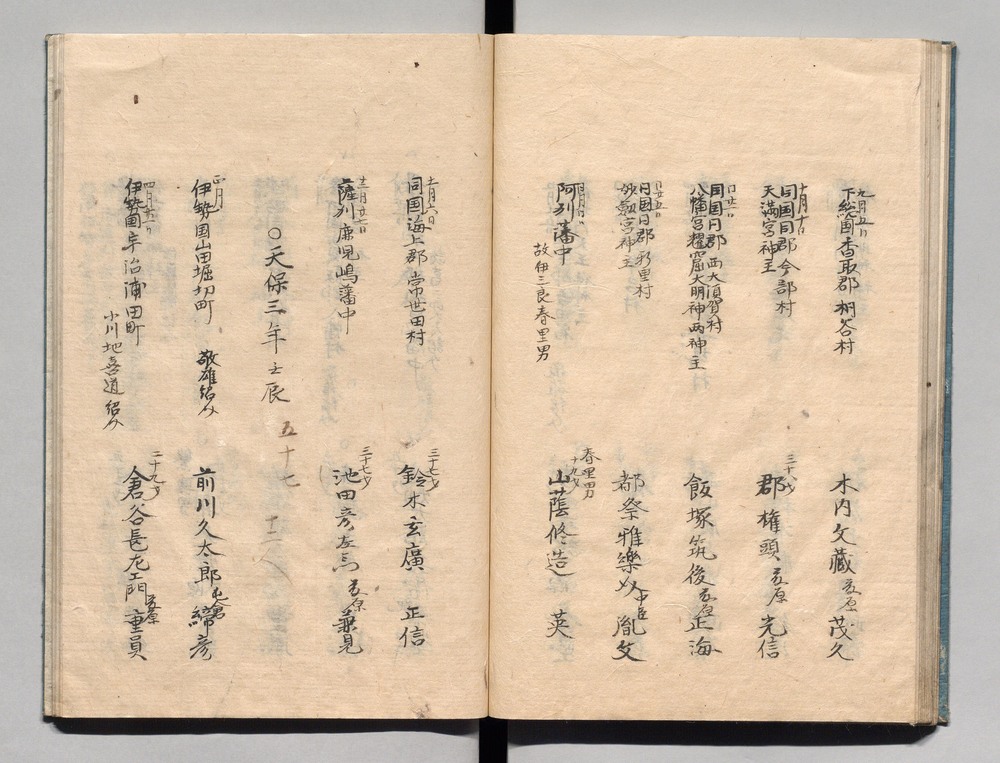 九月五日
下総国香取郡桐谷村
木内文蔵 藤原 茂久
十月十日
同国同郡今部村
天満宮神主
三十八才
郡権頭 藤原 光信
同国同郡西大須賀村
八幡宮糀窟大明神両神主
飯塚筑後 藤原 正海
同国同郡新里村
妙剱宮神主
都祭雅樂 中臣 胤文
阿州藩中
故伊三良春里男
春里男
十九才
山蔭修造 英
十一月六日
同国海上郡常世田村
三十七才
鈴木玄廣 正信
薩州鹿児嶋藩中
三十七才
池田彦左エ門 藤原 兼見
○天保三年壬辰
五十七
十二人
正月
伊勢国山田堀切町
敬雄紹介
前川久太郎 締彦
伊勢国宇治浦田町
小川地喜道紹介
二十九才
倉谷長左エ門 藤原 重員